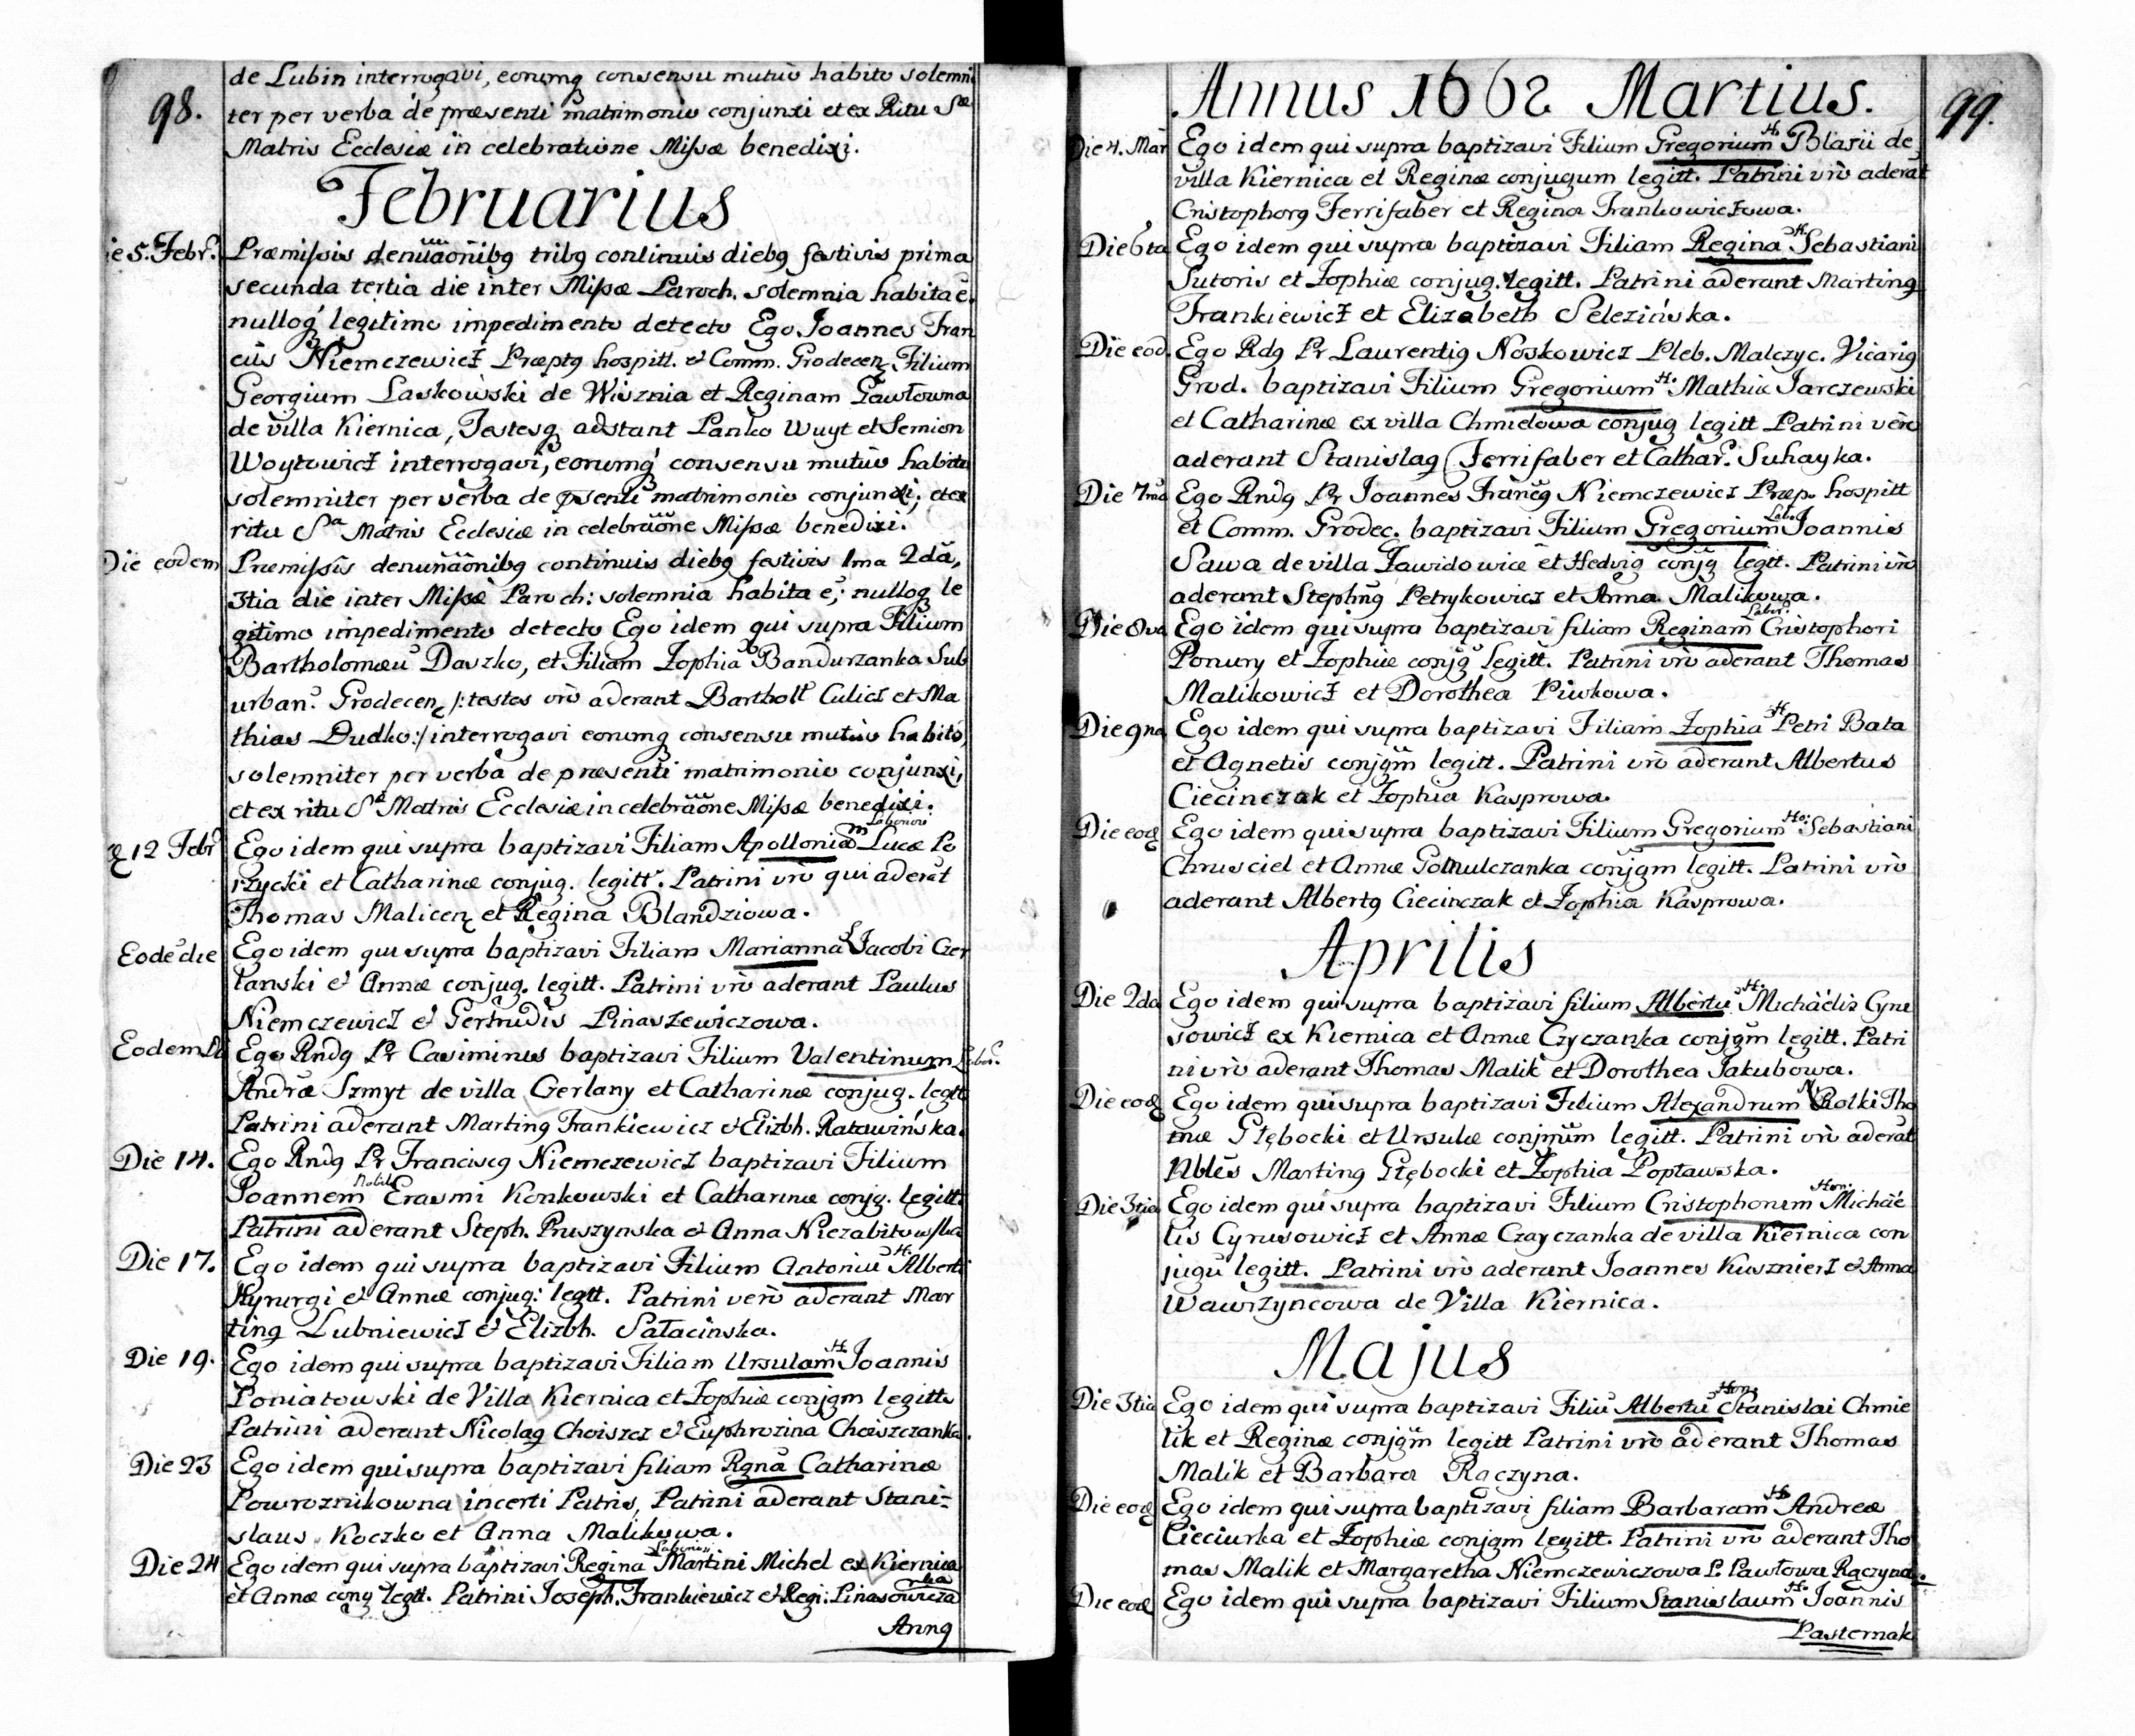 98.
de Lubin interrogavi, eorumq consensu mutuo habito solemni
ter per verba de præsenti matrimonio conjunxi et ex Ritu Sæ
Matris Ecclesiæ in celebratione Missæ benedixi.
Februarius
ie 5. Febr. Præmissis denũãõnibq tribq continuis diebq festivis prima
secunda tertia die inter Missæ Paroch. solemnia habita ẽ.
nulloq legitimo impedimento detecto Ego Joannes Fran
cus Niemczewicz Præptq hospitt. & Comm. Grodecen Filium
Georgium Laskowski de Wisznia et Reginam Gawłowna
de villa Kiernica, Testesq adstant Panko Wuyt et Semion
Woytowicz interrogavi, eorumq consensu mutuo habito
solemniter per verba de psenti matrimonio conjunxi, et ex
ritu Sa Matris Ecclesiæ in celebrãõne Missæ benedixi.
Die eodem Præmissis denunãõnibq continuis diebq festivis 1ma 2da,
3tia die inter Missæ Paroch: solemnia habita ẽ; nulloq le
gitimo impedimento detecto Ego idem qui supra Filium
Bartholomæu Daszko, et Filiam Zophia Bandurzanka Sub
urban. Grodecen /: testes vrò aderant Bartholt Culicz et Ma
thias Dudko :/ interrogavi eorumq consensu mutuo habito,
solemniter per verba de præsenti matrimonio conjunxi,
et ex ritu Sa Matris Ecclesiæ in celebrãõne Missæ benedixi.
12 Febr Ego idem qui supra baptizavi Filiam Apolloniam Laboriosi Lucæ Po
rzycki et Catharinæ conjug. legitt. Patrini vrò qui aderãt
Thomas Malicen et Regina Blandziowa.
Eodẽ die Ego idem qui supra baptizavi Filiam Marianna L Jacobi Czer
lanski & Annæ conjug. legitt. Patrini vrò aderant Paulus
Niemczewicz & Gertrudis Pinaszewiczowa.
Eodem Di Ego Rndq Pr Casimirus baptizavi Filium Valentinum Labor.
Andræ Szmyt de villa Cerlany et Catharinæ conjug. legtt
Patrini aderant Martinq Frankiewicz & Elizbh. Ratawińska.
Die 14. Ego Rndq Pr Franciscq Niemczewicz baptizavi Filium
Joannem Nobil Erasmi Konkowski et Catharinæ conjg. legitt.
Patrini aderant Steph. Pruszynska & Anna Niezabitowska
Die 17. Ego idem qui supra baptizavi Filium Antoniũ H. Alberti
Kyrurgi & Annæ conjug: legtt. Patrini verò aderant Mar
tinq Lubniewicz & Elizbh. Sałacinska.
Die 19. Ego idem qui supra baptizavi Filiam Ursulam H Joannis
Poniatowski de Villa Kiernica et Zophiæ conjgm legitt
Patrini aderant Nicolaq Choiszcz & Euphrozina Choiszczanka.
Die 23 Ego idem qui supra baptizavi filiam Rgnã Catharinæ
Powroznikowna incerti Patris, Patrini aderant Stani-
slaus Koczko et Anna Malikowa.
Die 24 Ego idem qui supra baptizavi Regina Laboriosi Martini Michel ex Kiernica
et Annæ conq legtt. Patrini Joseph. Frankiewicz & Regi: Pinasowicza
Annq
99.
Annus 1662 Martius.
Die 4. Mar Ego idem qui supra baptizavi Filium Gregorium H. Blasii de
villa Kiernica et Reginæ conjugum legitt. Patrini vrò aderãt
Cristophorq Ferrifaber et Regina Frankowiczowa.
Die 6ta Ego idem qui supra baptizavi Filiam Regina H. Sebastiani
Sutoris et Zophiæ conjug. legitt. Patrini aderant Martinq
Frankiewicz et Elizabeth Selezińska.
Die eod. Ego Rdq Pr Laurentiq Noskowicz Pleb. Malczyc. Vicariq
Grod. baptizavi Filium Gregorium H. Mathiæ Jarczewski
et Catharinæ ex villa Chmielowa conjug legitt Patrini vèro
aderant Stanislaq Ferrifaber et Cathar. Suhayka.
Die 7ma Ego Rndq Pr Joannes Francq Niemczewicz Præp. hospitt
et Comm. Grodec. baptizavi Filium Gregorium Lab. Joannis
Sawa de villa Zawidowice et Hedvig conjq legtt. Patrini vrò
aderant Stephnq Petrykowicz et Anna Malikowa.
Die 8va Ego idem qui supra baptizavi filiam Reginam Labor. Cristophori
Ponury et Zophiæ conjg legitt. Patrini vrò aderant Thomas
Malikowicz et Dorothea Piwkowa.
Die 9na Ego idem qui supra baptizavi Filiam Zophia H. Petri Bata
et Agnetis conjgm legitt. Patrini vrò aderant Albertus
Ciecinczak et Zophia Kasprowa.
Die eod Ego idem qui supra baptizavi Filium Gregorium Ho: Sebastiani
Chrusciel et Annæ Gomulczanka conjgm legitt. Patrini vrò
aderant Albertq Ciecinczak et Zophia Kasprowa.
Aprilis
Die 2da Ego idem qui supra baptizavi filium Albertũ H. Michaëlis Cyru
sowicz ex Kiernica et Annæ Czyczanka conjgm legitt. Patri
ni vrò aderant Thomas Malik et Dorothea Jakubowa.
Die eod Ego idem qui supra baptizavi Filium Alexandrum N. Rolki Tho
mæ Głębocki et Ursulæ conjgum legitt. Patrini vrò aderãt
Nbles Martinq Głębocki et Zophia Popławska.
Die 3tia Ego idem qui supra baptizavi Filium Cristophorum Hon. Michaë
lis Cyrusowicz et Annæ Czayczanka de villa Kiernica con
jugũ legitt. Patrini vrò aderant Joannes Kusznierz & Anna
Wawrzyncowa de Villa Kiernica.
Majus
Die 3tia Ego idem qui supra baptizavi Filiũ Albertũ Hon. Stanislai Chmie
lik et Reginæ conjgm legitt Patrini vrò aderant Thomas
Malik et Barbara Rączyna.
Die eod Ego idem qui supra baptizavi filiam Barbaram H. Andreæ
Cieciurka et Zophiæ conjgm legitt. Patrini vrò aderant Tho
mas Malik et Margaretha Niemczewiczowa P. Pawłowa Rączyna.
Die eod Ego idem qui supra baptizavi Filium Stanislaum H. Joannis
Pasternak